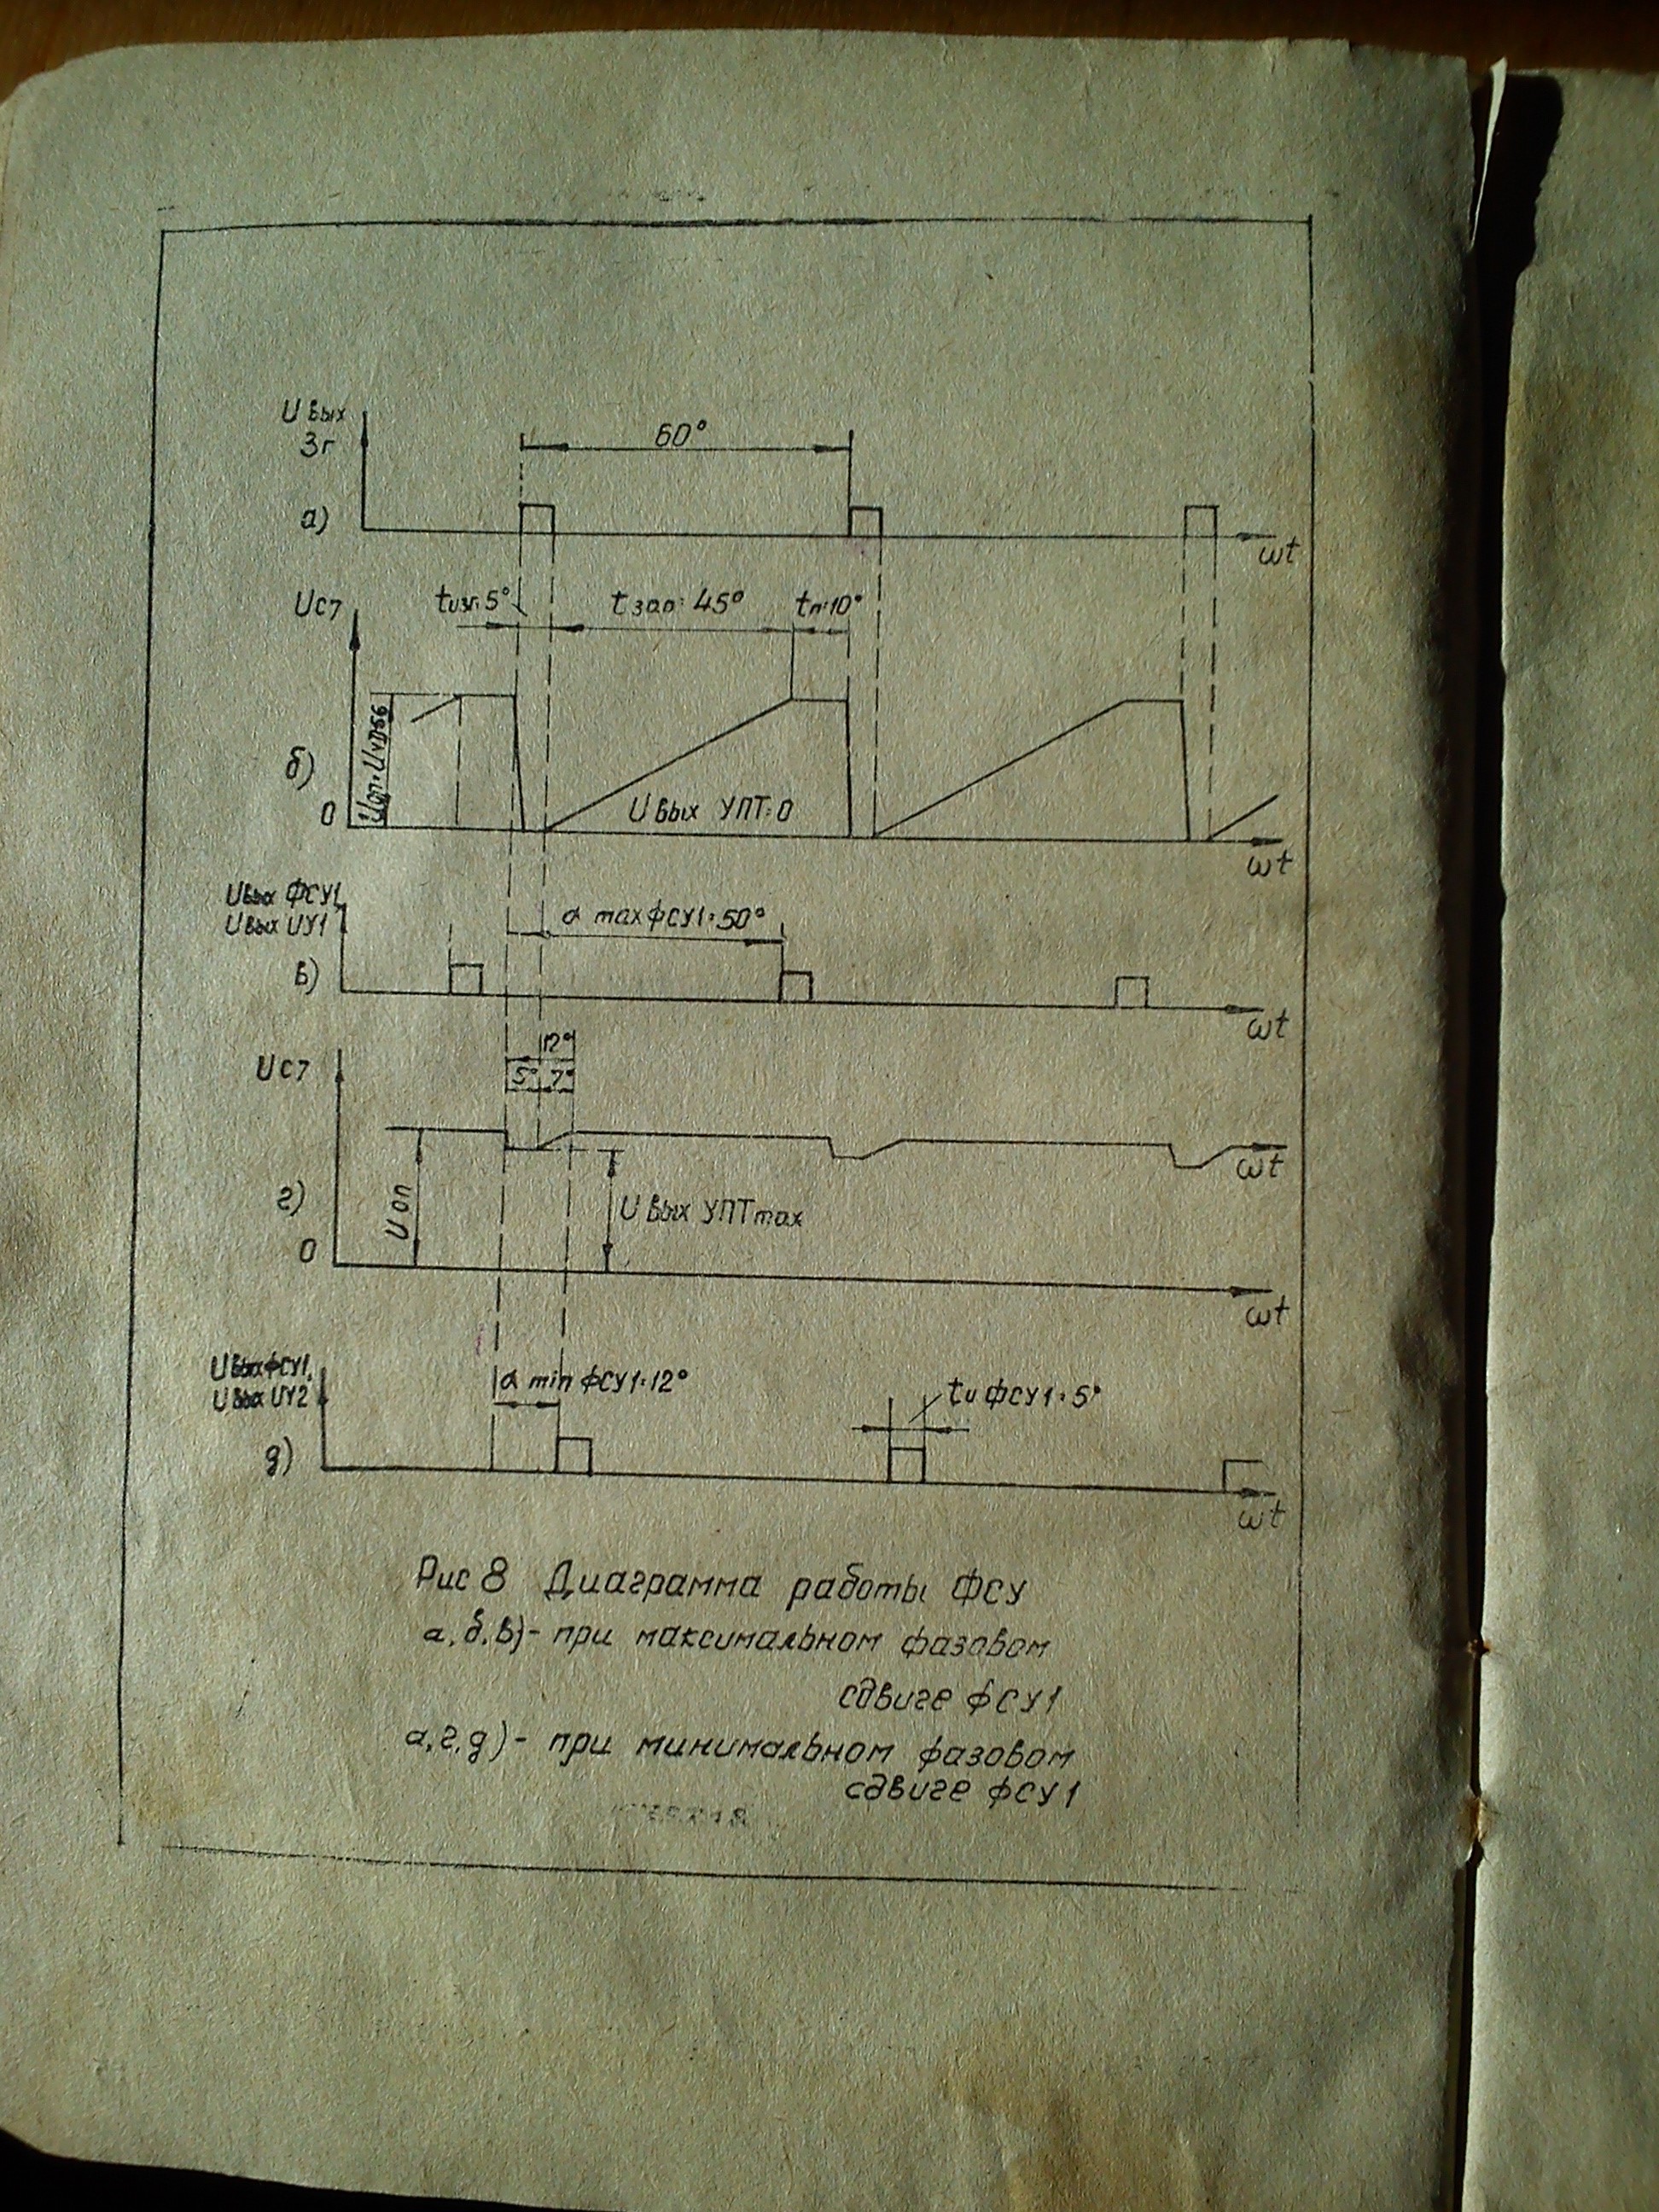 U вых
Зг
60°
а)
ωt
Uс7
tзар=45°
tп=10°
Uоп=UVD56
б)
0
U вых УПТ=0
ωt
Uвых ФСУ1,
Uвых UY1
α max ФСУ1=50°
в)
ωt
12°
Uс7
5° 7°
ωt
г)
U оп
U вых УПТmax
0
ωt
Uвых ФСУ1,
Uвых UY2
α min ФСУ1=12°
tи ФСУ1=5°
д)
ωt
Рис 8 Диаграмма работы ФСУ
а,б,в)- при максимальном фазовом
сдвиге ФСУ1
а,г,д)- при минимальном фазовом
сдвиге ФСУ1